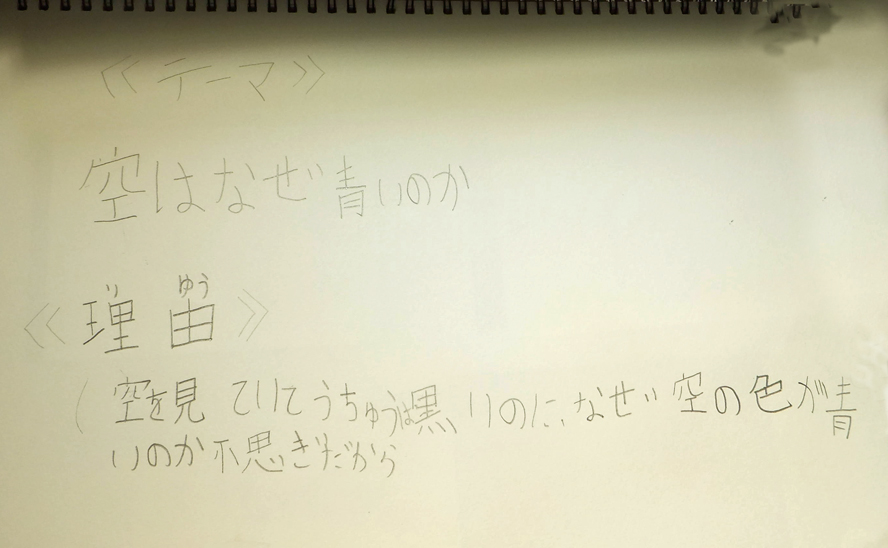 《テーマ》
空はなぜ青いのか
りゆう
《理由》
(空を見ていてうちゅうは黒いのに、なぜ空の色が青
いのか不思ぎだから